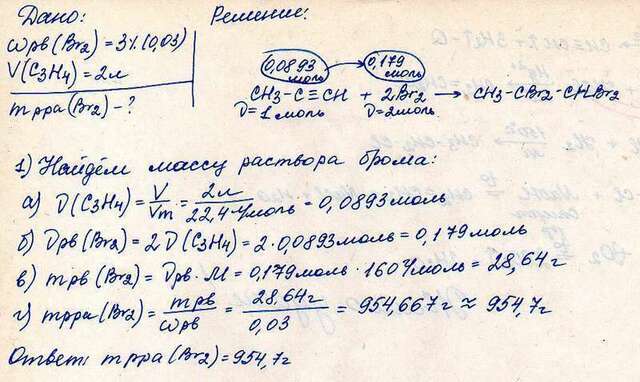 Дано:
Решение:
ωрв(Br2)=3%(0,03)
V(C3H4)=2л
mрра(Br2)-?
0,0893 моль
0,179 моль
CH3-C≡CH + 2Br2 → CH3-CBr2-CHBr2
ν=1моль ν=2моль
1) Найдём массу раствора брома:
а) ν(C3H4)=V/Vm=2л/22,4л/моль=0,0893моль
б) νрв(Br2)=2ν(C3H4)=2·0,0893моль=0,179моль
в) mрв(Br2)=νрв·M=0,179моль·160г/моль=28,64г
г) mрра(Br2)=mрв/ωрв=28,64г/0,03=954,667г≈954,7г
Ответ: mрра(Br2)=954,7г